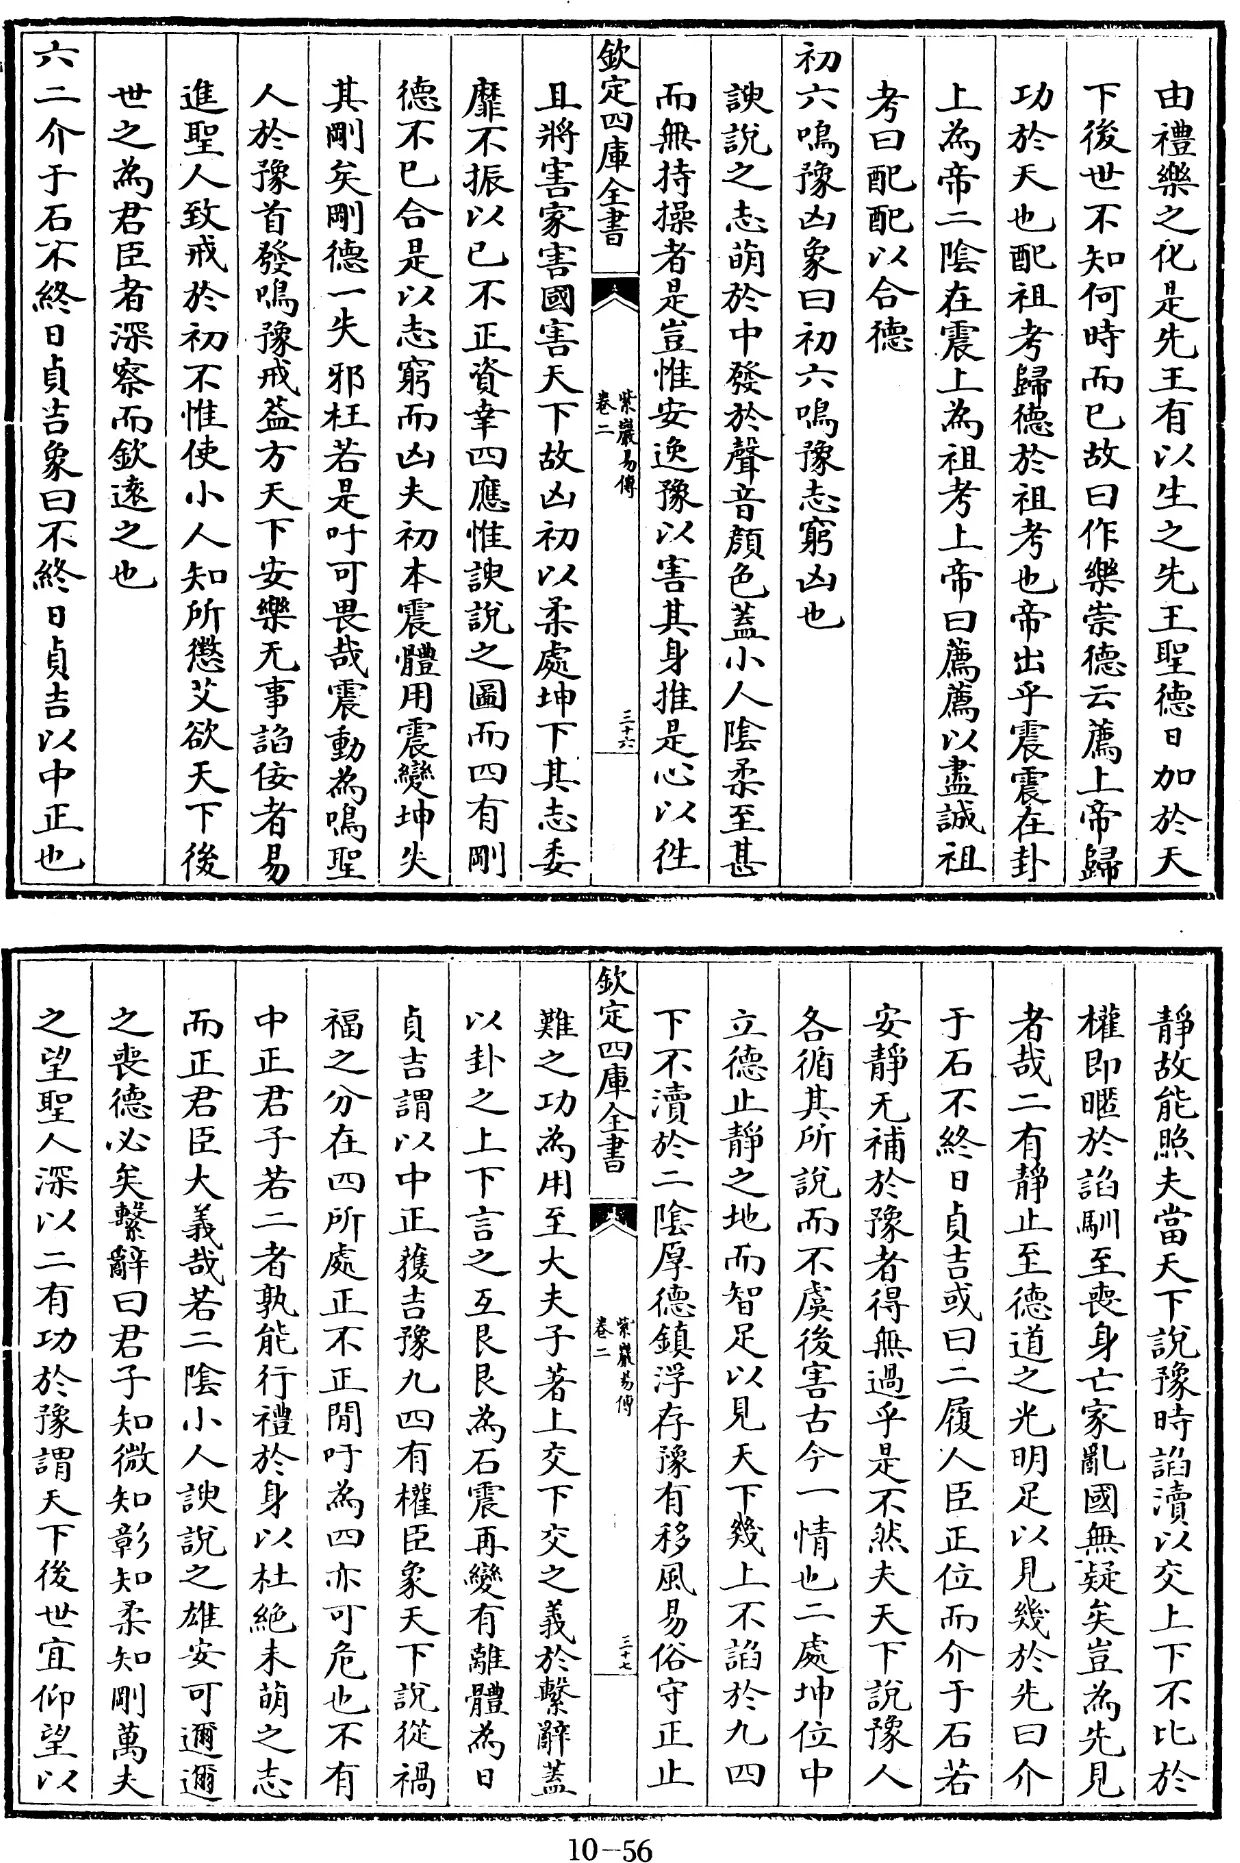 由禮樂之化是先王有以生之先王聖德日加於天
下後世不知何時而已故曰作樂崇德云薦上帝歸
功於天也配祖考歸德於祖考也帝出乎震震在卦
上為帝二陰在震上為祖考上帝曰薦薦以盡誠祖
考曰配配以合德
初六鳴豫凶象曰初六鳴豫志窮凶也
諛說之志萌於中發於聲音顔色蓋小人陰柔至甚
而無持操者是豈惟安逸豫以害其身推是心以徃
欽定四庫全書
紫巖易傳
卷二
三十六
且將害家害國害天下故凶初以柔處坤下其志委
靡不振以已不正資幸四應惟諛說之圖而四有剛
德不已合是以志窮而凶夫初本震體用震變坤失
其剛矣剛德一失邪枉若是吁可畏哉震動為鳴聖
人於豫首發鳴豫戒葢方天下安樂无事諂佞者易
進聖人致戒於初不惟使小人知所懲艾欲天下後
世之為君臣者深察而欽遠之也
六二介于石不終日貞吉象曰不終日貞吉以中正也
靜故能照夫當天下說豫時諂瀆以交上下不比於
權即暱於諂馴至喪身亡家亂國無疑矣豈為先見
者哉二有靜止至德道之光明足以見幾於先曰介
于石不終日貞吉或曰二履人臣正位而介于石若
安靜无補於豫者得無過乎是不然夫天下說豫人
各循其所說而不虞後害古今一情也二處坤位中
立德止靜之地而智足以見天下幾上不諂於九四
下不瀆於二陰厚德鎮浮存豫有移風易俗守正止
欽定四庫全書
紫巖易傳
卷二
三十七
難之功為用至大夫子著上交下交之義於繫辭蓋
以卦之上下言之互艮艮為石震再變有離體為日
貞吉謂以中正獲吉豫九四有權臣象天下說從禍
福之分在四所處正不正閒吁為四亦可危也不有
中正君子若二者孰能行禮於身以杜絶未萌之志
而正君臣大義哉若二陰小人諛說之雄安可邇邇
之喪德必矣繫辭曰君子知微知彰知柔知剛萬夫
之望聖人深以二有功於豫謂天下後世宜仰望以
10--56